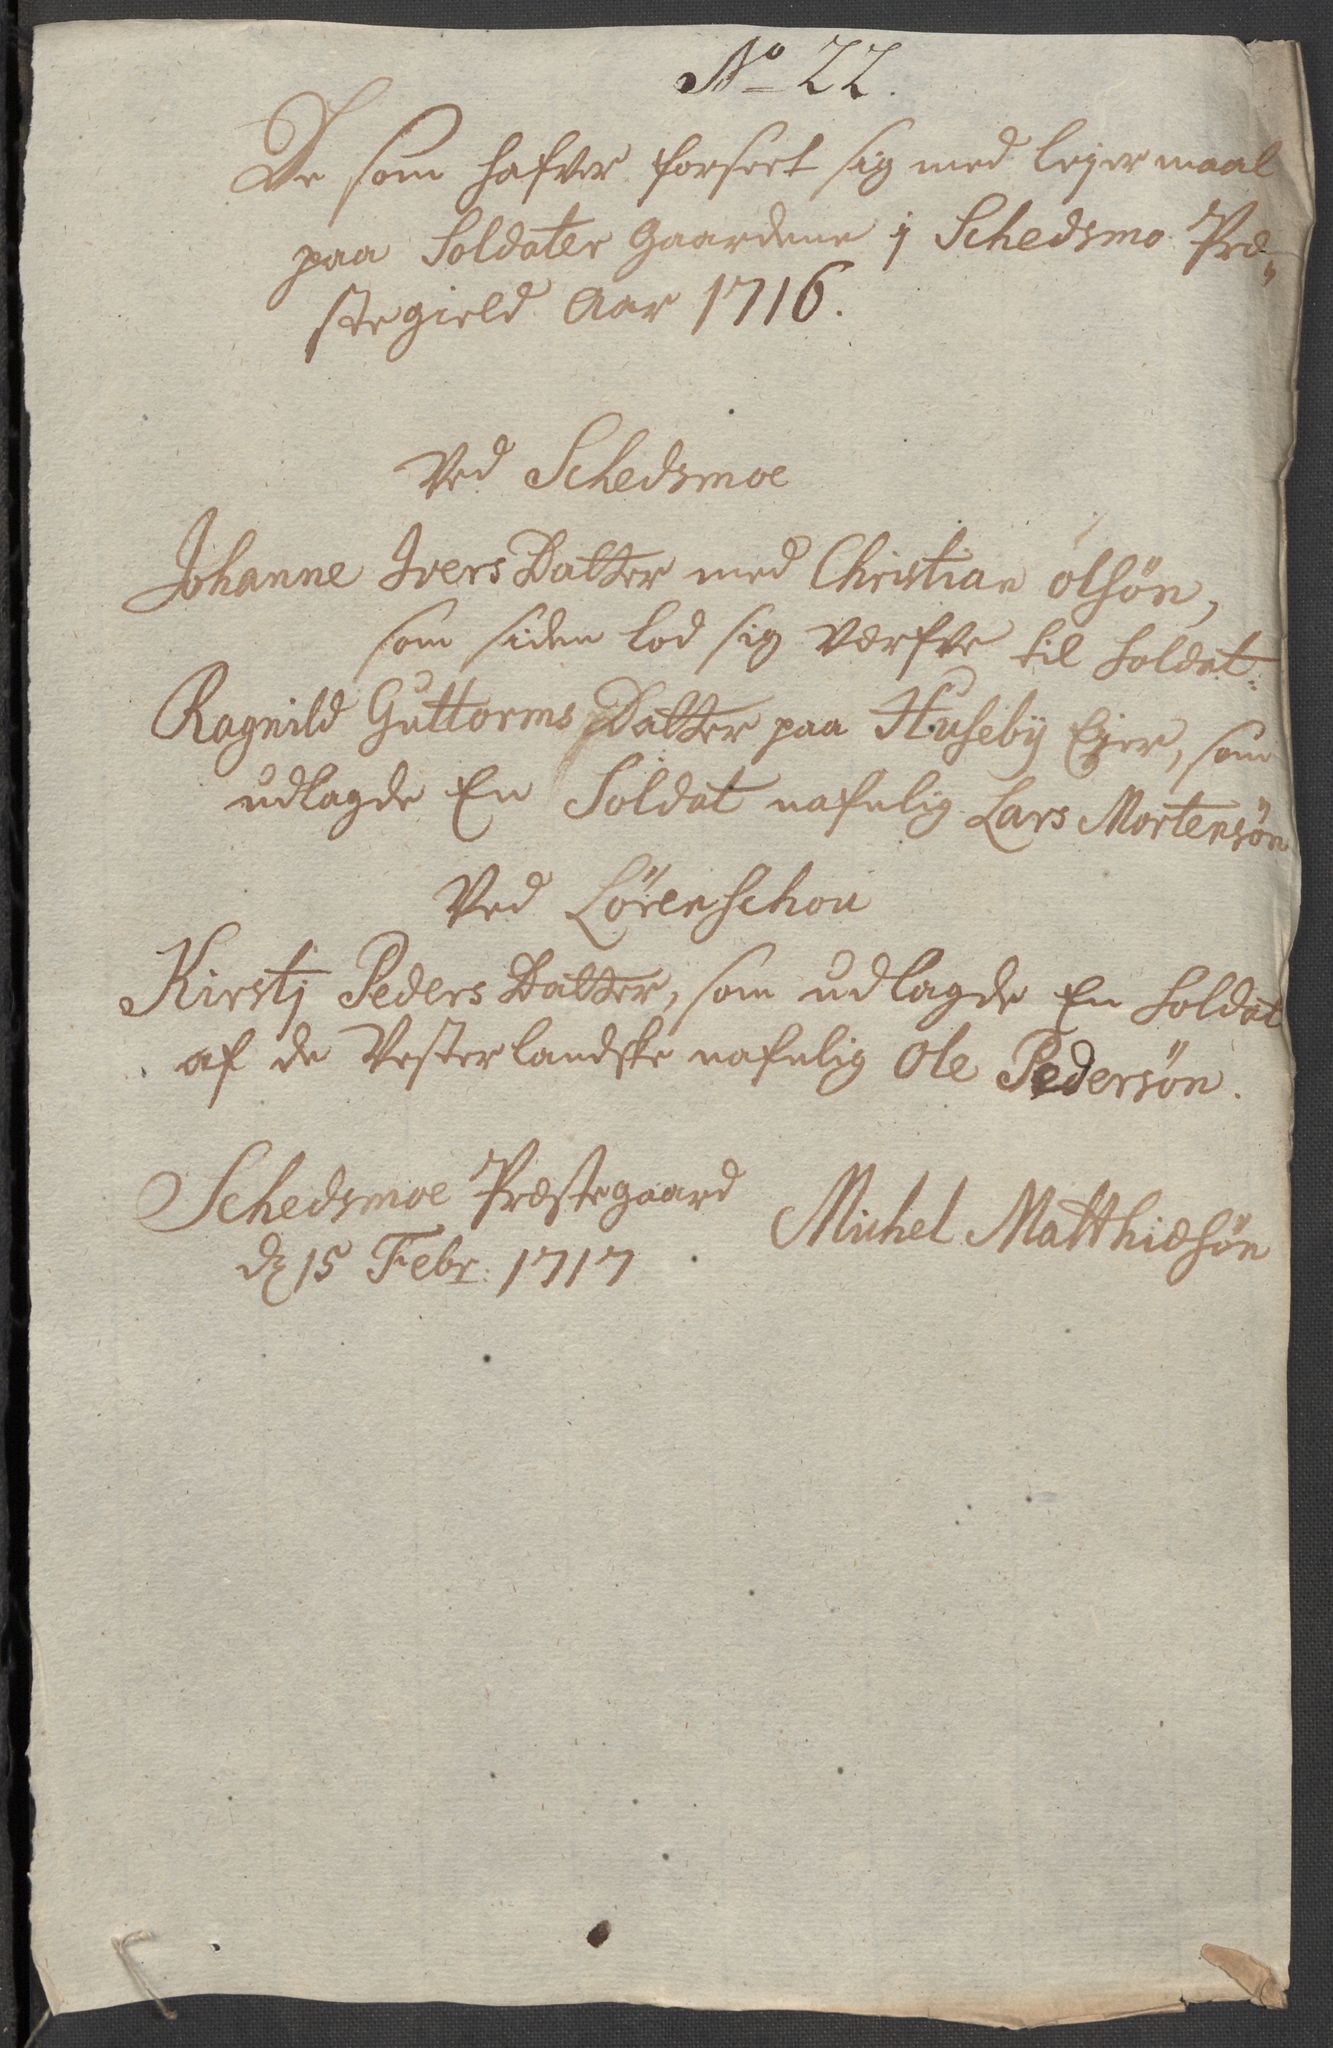 No 22.
De som hafver forseet sig med lejermaal
paa Soldater Gaardene j Schedsmo Præ-
stegield Aar 1716.
Ved Schedsmoe
Johanne Ivers Datter med Christian olsön,
som siden lod sig værfve til Soldat.
Ragnild Guttorms Datter paa Huseby Ejer, som
udlagde En Soldat nafnlig Lars Mortensön
Ved Lörenschou
Kirstj Peders Datter, som udlagde En Soldat
af de Vesterlandske nafnlig Ole Pedersön.
Schedsmoe Præstegaard
d 15 Febr: 1717
Michel Matthiæsön